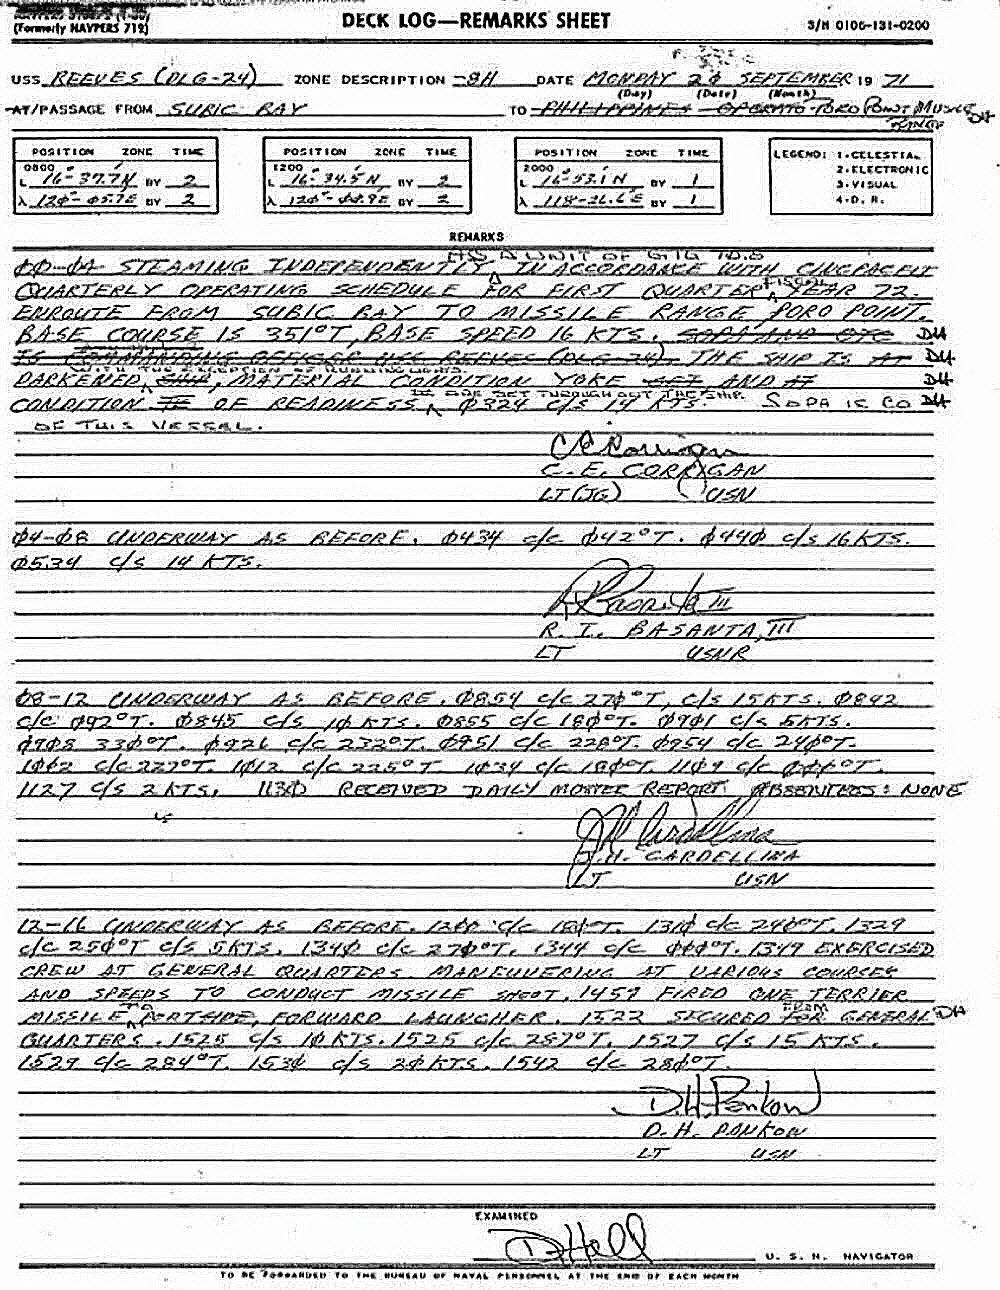 (Formerly NAVPERS 719)
DECK LOG—REMARKS SHEET
S/N 0106-131-0200
USS REEVES (DLG-24) ZONE DESCRIPTION -8H DATE MONDAY 2Ø SEPTEMBER 19 71
(Day) (Date) (Month)
AT/PASSAGE FROM SUBIC BAY TO PHILIPPINES PORO POINT MISSILE
RANGE DH
POSITION ZONE TIME
0800
L 16-37.7N BY 2
λ 12Ø-Ø5.7E BY 2
POSITION ZONE TIME
1200
L 16-34.5N BY 2
λ BY 2
POSITION ZONE TIME
2000
L 16-53.1N BY 1
λ 118-26.6E BY 1
LEGEND: 1-CELESTIAL
2-ELECTRONIC
3-VISUAL
4-D. R.
REMARKS
AS A UNIT OF
ØØ-Ø4 STEAMING INDEPENDENTLY IN ACCORDANCE WITH CINCPACFLT
QUARTERLY OPERATING SCHEDULE FOR FIRST QUARTER FISCAL YEAR 72.
ENROUTE FROM SUBIC BAY TO MISSILE RANGE PORO POINT.
BASE COURSE IS 351°T, BASE SPEED 16 KTS. SOPA AND OTC DH
IS COMMANDING OFFICER USS REEVES (DLG-24). THE SHIP IS AT DH
WITH THE EXCEPTION OF RUNNING LIGHTS.
DARKENED SHIP, MATERIAL CONDITION YOKE SET AND AT DH
ARE SET THROUGHOUT THE SHIP.
CONDITION IV OF READINESS Ø324 C/S 14 KTS. SOPA IS CO DH
OF THIS VESSEL.
C. E. CORRIGAN
LT(JG) USN
Ø4-Ø8 UNDERWAY AS BEFORE. Ø434 c/c Ø42°T. Ø44Ø c/s 16 KTS.
Ø534 c/s 14 KTS.
R. I. BASANTA, III
LT USNR
Ø8-12 UNDERWAY AS BEFORE. c/c 27Ø°T, c/s 15 KTS. Ø842
c/c Ø92°T. Ø845 c/s 1Ø KTS. Ø855 c/c 18Ø°T. Ø9Ø1 c/s 5KTS.
Ø9Ø8 33Ø°T. Ø926 c/c 232°T. Ø951 c/c 228°T. Ø954 c/c 24Ø°T.
c/c 227°T. 1Ø12 c/c 225°T. 1Ø34 c/c 18Ø°T. 11Ø9 c/c ØØØ°T.
1127 c/s 2 KTS. 113Ø RECEIVED DAILY MUSTER REPORT ABSENTEES: NONE
J.H. CARDELLINA
LT USN
12-16 UNDERWAY AS BEFORE. 12ØØ c/c 18Ø°T. 131Ø c/c 24Ø°T. 1329
c/c 25Ø°T c/s 5 KTS. 134Ø c/c 27Ø°T. 1344 c/c ØØØ°T. 1347 EXERCISED
CREW AT GENERAL QUARTERS. MANEUVERING AT VARIOUS COURSES
AND SPEEDS TO CONDUCT MISSILE SHOOT. 1457 FIRED ONE TERRIER
MISSILE TO PORTSIDE, FORWARD LAUNCHER. 1522 SECURED FROM GENERAL DH
QUARTERS. 1525 c/s 1Ø KTS. 1525 c/c 287°T. 1527 c/s 15 KTS.
1529 c/c 284°T. 153Ø c/s 2Ø KTS. 1542 c/c 28Ø°T.
D.H. Pankow
D. H. PANKOW
LT USN
EXAMINED
D Hall
U. S. N. NAVIGATOR
TO BE FORWARDED TO THE BUREAU OF NAVAL PERSONNEL AT THE END OF EACH MONTH